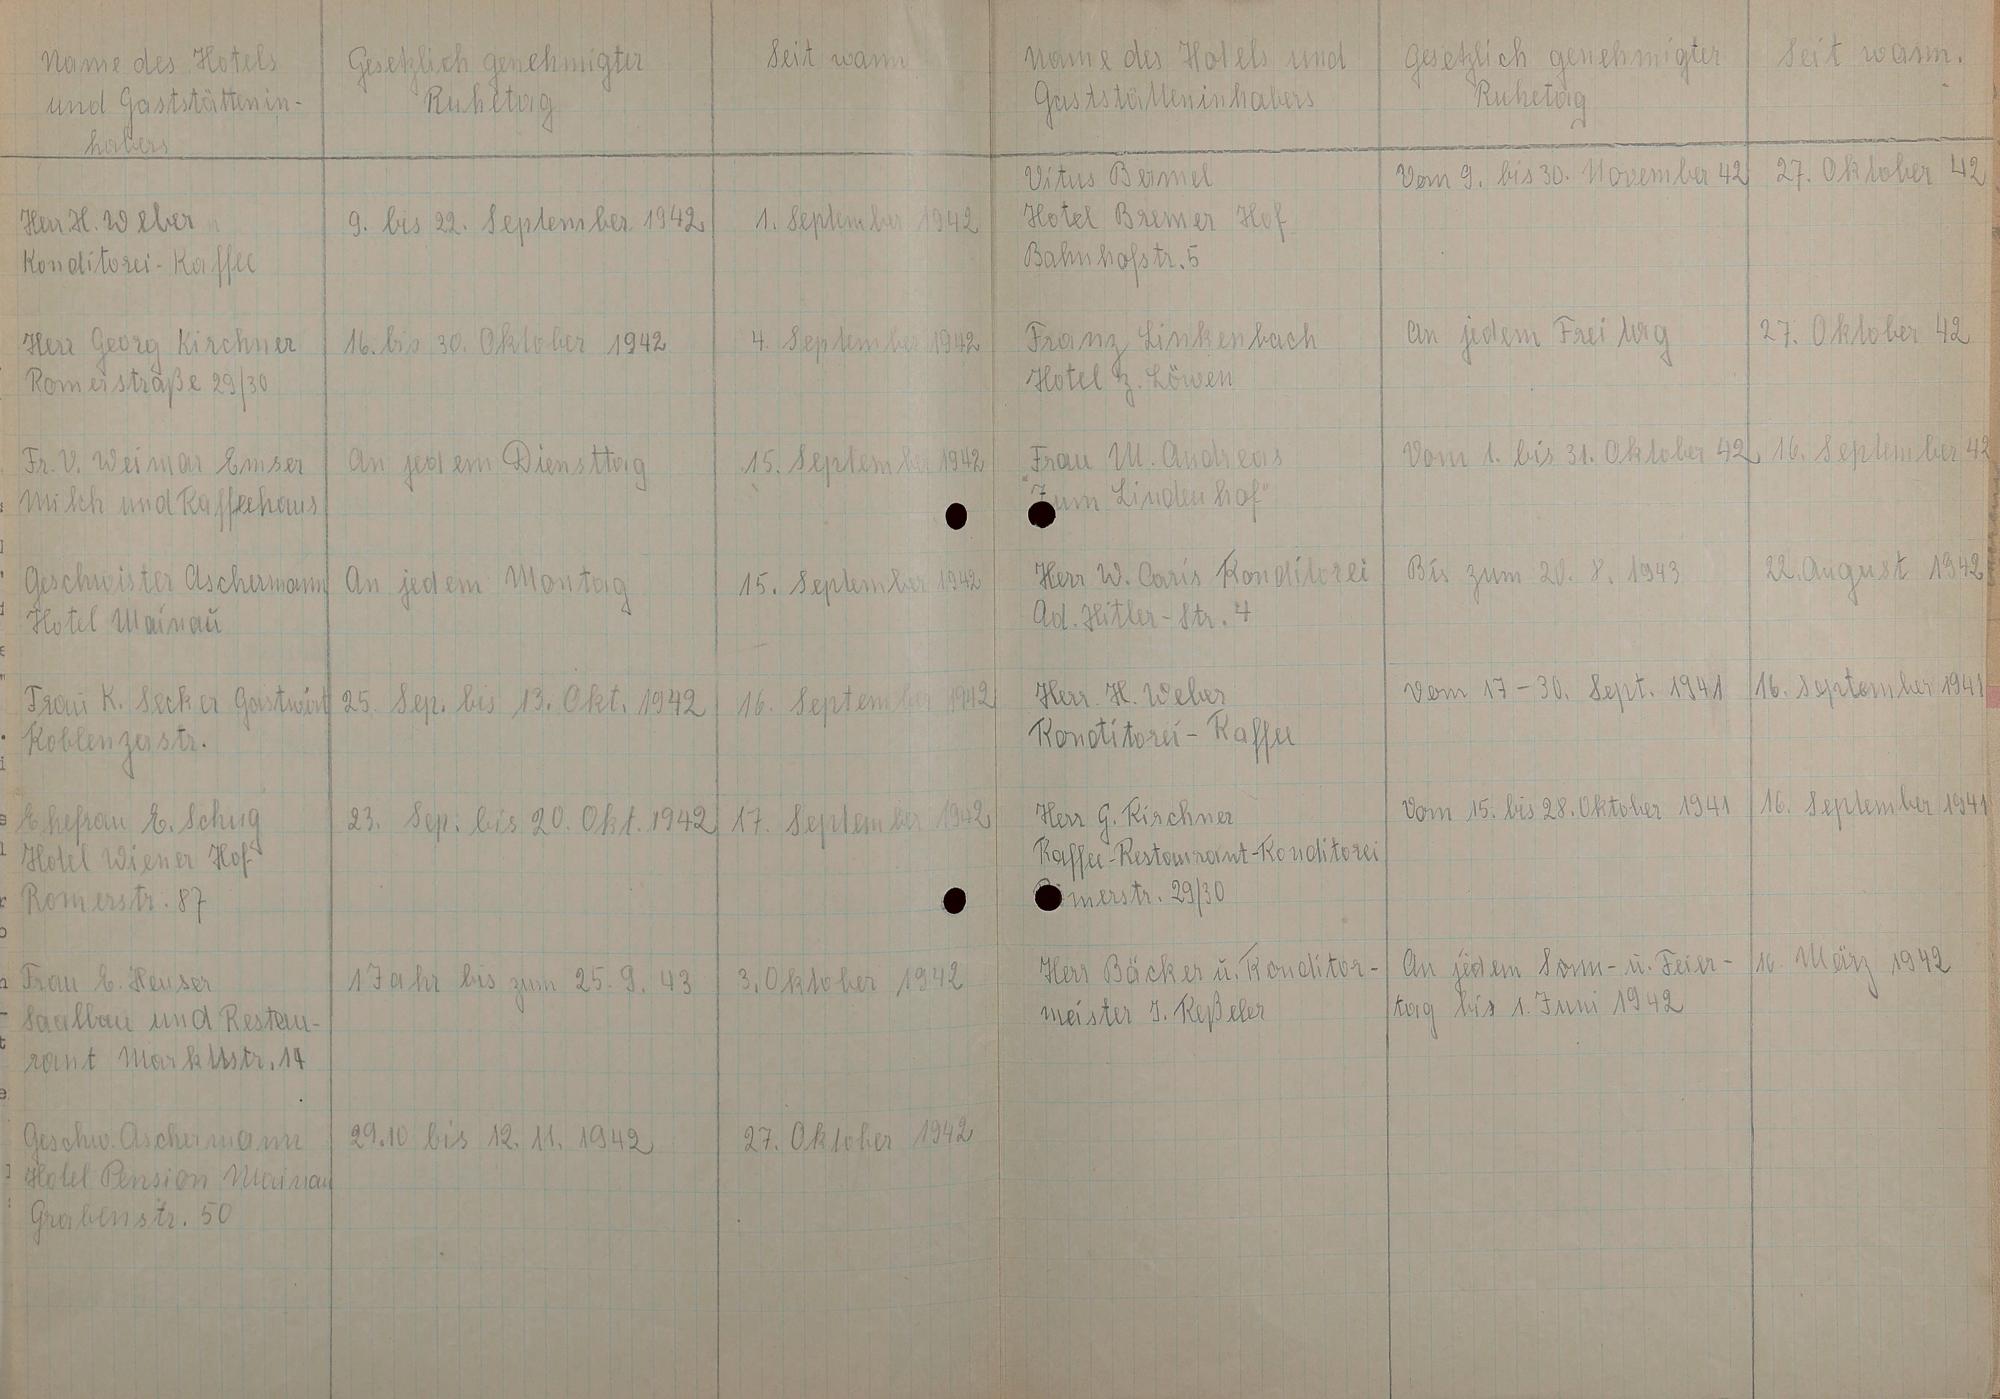 Name des Hotels
und Gaststättenin-
habers
Gesetzlich genehmigter
Ruhetag
Seit wann
Herr H. Weber
Konditorei-Kaffee
9. bis 22. September 1942
1. September 1942
Herr Georg Kirchner
Romerstraße 29/30
16. bis 30. Oktober 1942
4. September 1942
Fr. V. Weimar Emser
Milch und Kaffeehaus
An jedem Diensttag
15. September 1942
Geschwister Aschermann
Hotel Mainau
An jedem Montag
15. September 1942
Frau K. Secker Gastwirt
Koblenzerstr.
25. Sep. bis 13. Okt. 1942
16. September 1942
Ehefrau E. Schug
Hotel Wiener Hof
Romerstr. 87
23. Sep. bis 20. Okt. 1942
17. September 1942
Frau E. Heuser
Saalbau und Restau-
rant Marktstr. 14
1 Jahr bis zum 25. 9. 43
3. Oktober 1942
Geschw. Aschermann
Hotel Pension Mainau
Grabenstr. 50
29.10 bis 12. 11. 1942
27. Oktober 1942
Name des Hotels und
Gaststätteninhabers
Gesetzlich genehmigter
Ruhetag
Seit wann.
Vitus Bermel
Hotel Bremer Hof
Bahnhofstr. 5
Vom 9. bis 30. November 42
27. Oktober 42
Franz Linkenbach
Hotel z. Löwen
An jedem Freitag
27. Oktober 42
Frau M. Andreas
"Zum Lindenhof"
Vom 1. bis 31. Oktober 42
16. September 42
Herr W. Caris Konditorei
Ad. Hitler-Str. 4
Bis zum 20. 8. 1943
22. August 1942
Herr H. Weber
Konditorei-Kaffee
Vom 17-30. Sept. 1941
16. September 1941
Herr G. Kirchner
Kaffee-Restaurant-Konditorei
Römerstr. 29/30
Vom 15. bis 28. Oktober 1941
16. September 1941
Herr Bäcker u. Konditor-
meister J. Keßeler
An jedem Sonn- u. Feier-
tag bis 1. Juni 1942
16. März 1942